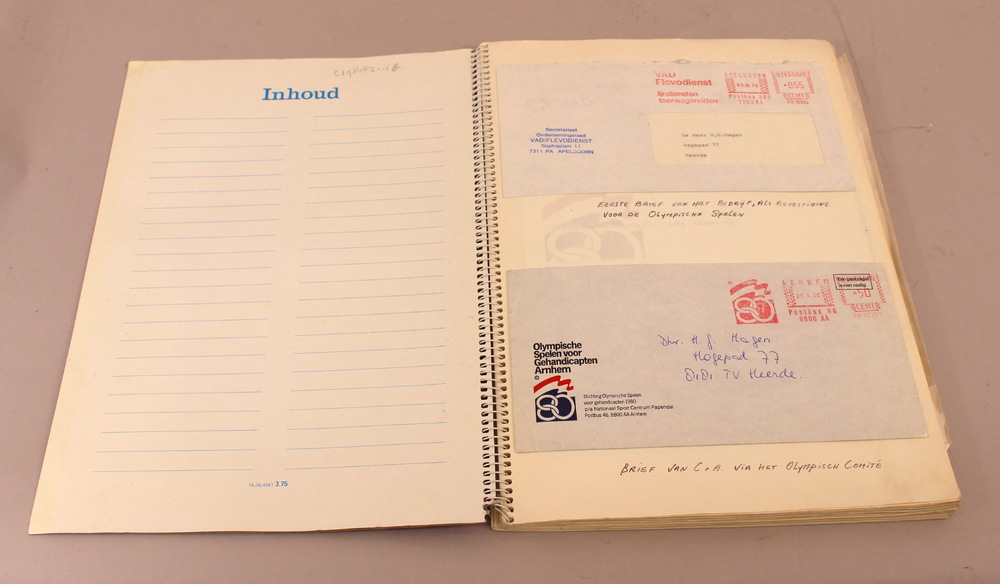 Inhoud
3.75
VAD
Flevodienst
lijndiensten
toerwagenritten
APELDOORN
Postbus
NEDERLAND
055
CENT
Secretariaat
Ondernemingsraad
VAD/FLEVODIENST
Sophiaplein 11
7311 PA APELDOORN
De Heer H.J.Hagen
Hogepad 77
Heerde
EERSTE BRIEF VAN HET BEDRIJF, ALS BEVESTIGING
VOOR DE OLYMPISCHE SPELEN
ARNHEM
Een postzegel
is niet nodig
50
CENT
Postbus 46
6800 AA
80
Dhr. H. J. Hagen
Hogepad 77
8181 TV Heerde.
Olympische
Spelen voor
Gehandicapten
Arnhem
©
80
Stichting Olympische Spelen
voor gehandicapten 1980
p/a Nationaal Sport Centrum Papendal
Postbus 46, 6800 AA Arnhem
BRIEF VAN C&A VIA HET OLYMPISCH COMITÉ.